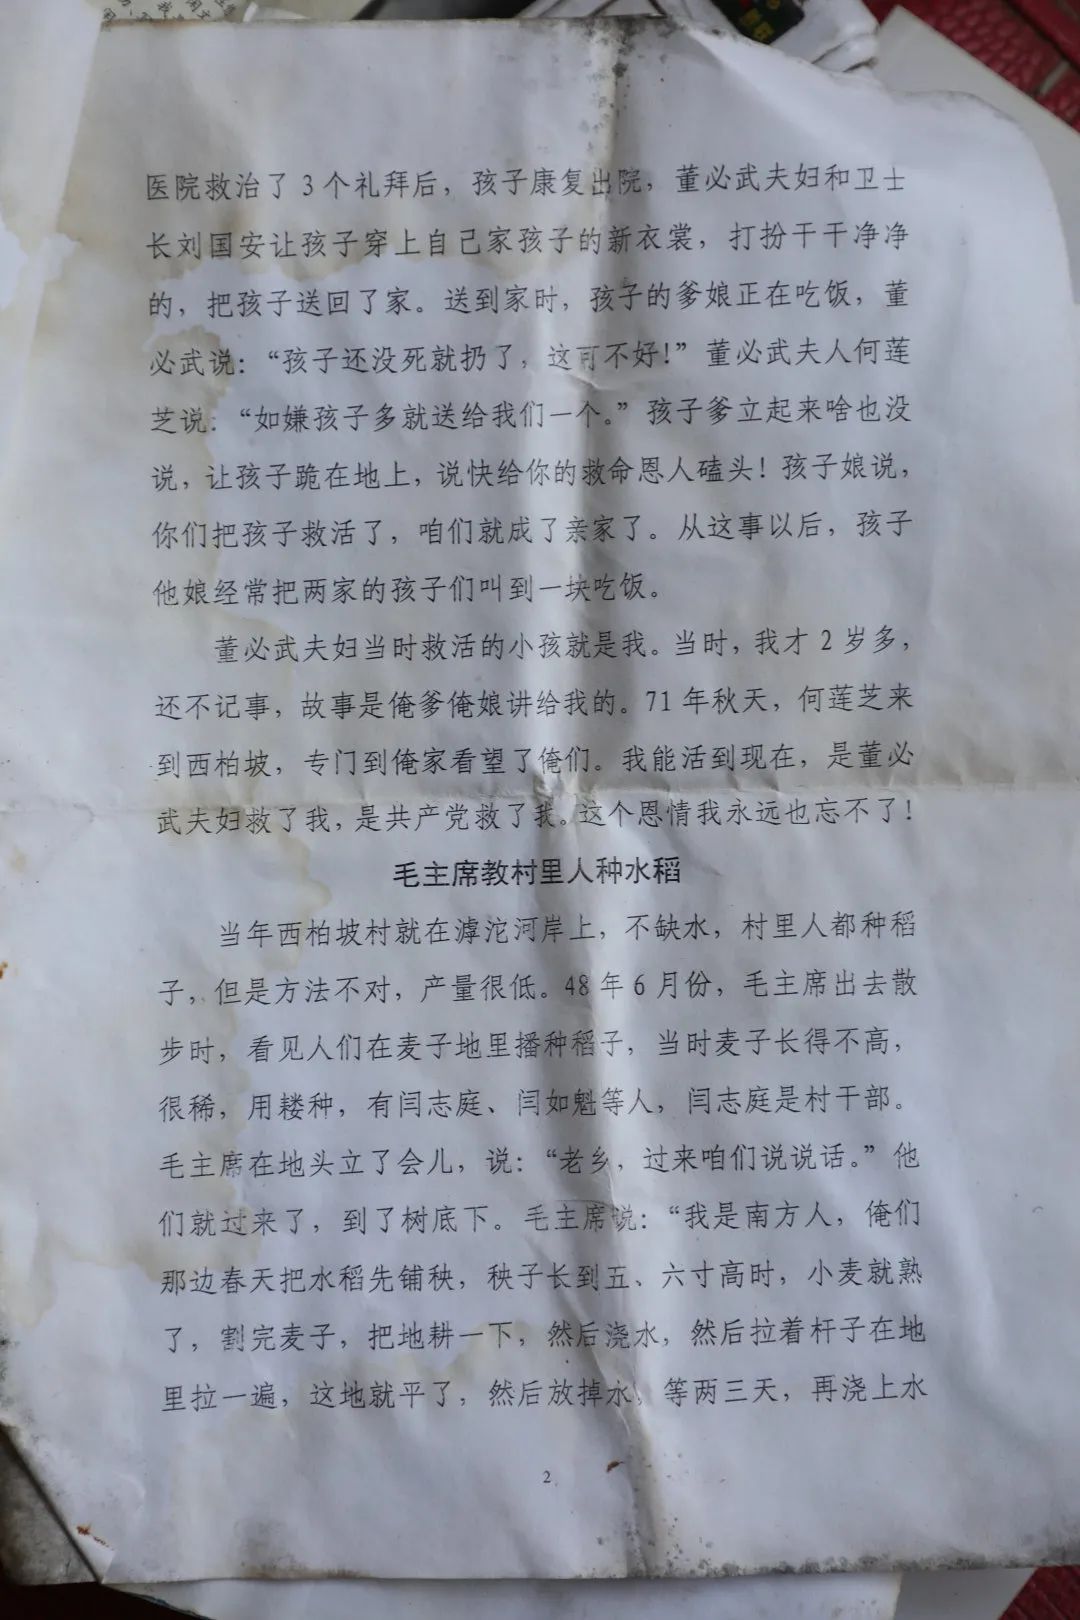 医院救治了3个礼拜后，孩子康复出院，董必武夫妇和卫士
长刘国安让孩子穿上自己家孩子的新衣裳，打扮干干净净
的，把孩子送回了家。送到家时，孩子的爹娘正在吃饭，董
必武说：“孩子还没死就扔了，这可不好！”董必武夫人何莲
芝说：“如嫌孩子多就送给我们一个。”孩子爹立起来啥也没
说，让孩子跪在地上，说快给你的救命恩人磕头！孩子娘说，
你们把孩子救活了，咱们就成了亲家了。从这事以后，孩子
他娘经常把两家的孩子们叫到一块吃饭。
董必武夫妇当时救活的小孩就是我。当时，我才2岁多，
还不记事，故事是俺爹俺娘讲给我的。71年秋天，何莲芝来
到西柏坡，专门到俺家看望了俺们。我能活到现在，是董必
武夫妇救了我，是共产党救了我。这个恩情我永远也忘不了！
毛主席教村里人种水稻
当年西柏坡村就在滹沱河岸上，不缺水，村里人都种稻
子，但是方法不对，产量很低。48年6月份，毛主席出去散
步时，看见人们在麦子地里播种稻子，当时麦子长得不高，
很稀，用耧种，有闫志庭、闫如魁等人，闫志庭是村干部。
毛主席在地头立了会儿，说：“老乡，过来咱们说说话。”他
们就过来了，到了树底下。毛主席说：“我是南方人，俺们
那边春天把水稻先铺秧，秧子长到五、六寸高时，小麦就熟
了，割完麦子，把地耕一下，然后浇水，然后拉着杆子在地
里拉一遍，这地就平了，然后放掉水，等两三天，再浇上水
2